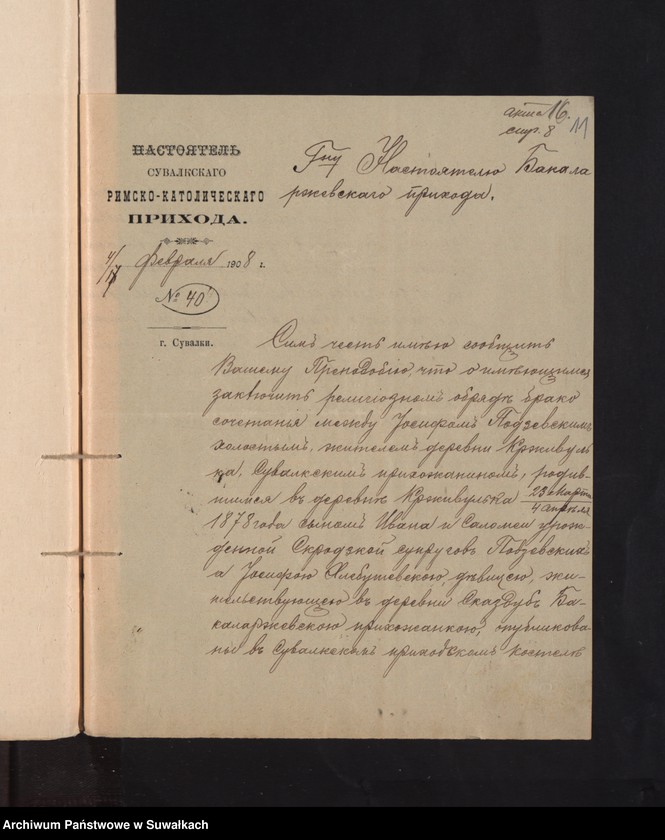 акта 16.
стр. 8
11
НАСТОЯТЕЛЬ
СУВАЛКСКАГО
РИМСКО-КАТОЛИЧЕСКАГО
ПРИХОДА.
4/17 февраля 1908 г.
№ 40
г. Сувалки.
Гну Настоятелю Бакала
ржевскаго прихода.
Симъ честь имѣю сообщить
Вашему Преподобію, что о имѣющимся
заключить религіозномъ обрядѣ брако
сочетанія между Іосифомъ Подзевскимъ,
холостымъ, жителемъ деревни Крживуль
ка, Сувалкскимъ прихожаниномъ, родив-
шимся въ деревнѣ Крживулька 23 Марта
4 апрѣля
1878 года сыномъ Ивана и Саломеи урож-
денной Скродзкой супруговъ Подзевскихъ
а Іосифою дѣвицею, жи-
тельствующею въ деревни Сказдубъ Ба-
каларжевскою прихожанкою, опубликова
ны въ Сувалкскомъ приходскомъ костелѣ
Archiwum Państwowe w Suwałkach